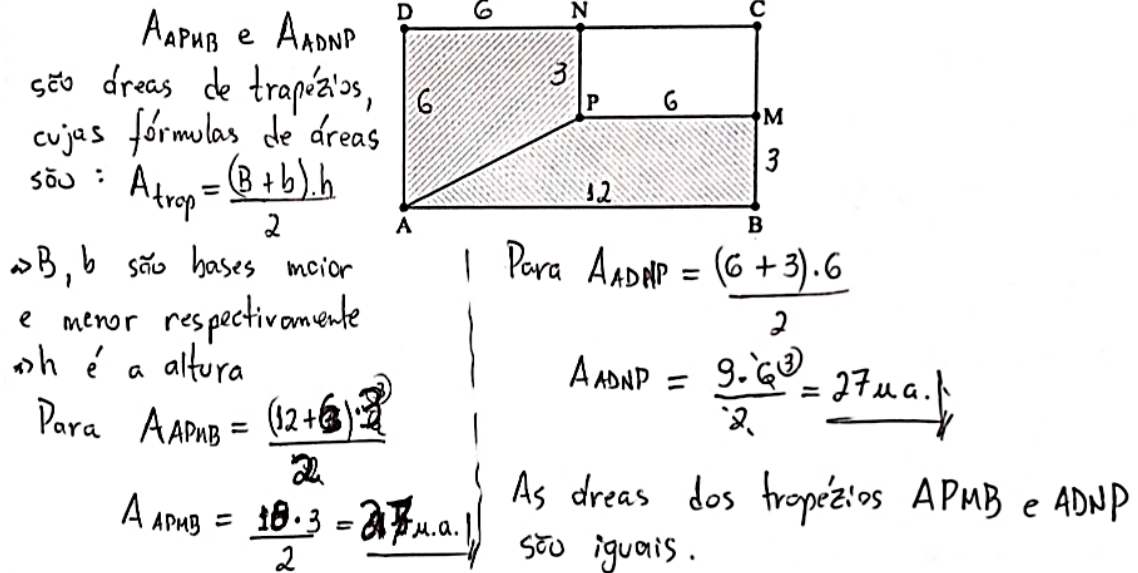 A_APMB e A_ADNP
são áreas de trapézios,
cujas fórmulas de áreas
são : A_trop = (B + b).h / 2
⇒B, b são bases maior
e menor respectivamente
⇒h é a altura
Para A_APMB = (12+6).3 / 2
A_APMB = 18.3 / 2 = 27 u.a.
D 6 N C
6 3 P 6 M
3
12
A B
Para A_ADNP = (6 + 3).6 / 2
A_ADNP = 9.6 ③ / 2 = 27 u.a.
As áreas dos trapézios APMB e ADNP
são iguais.